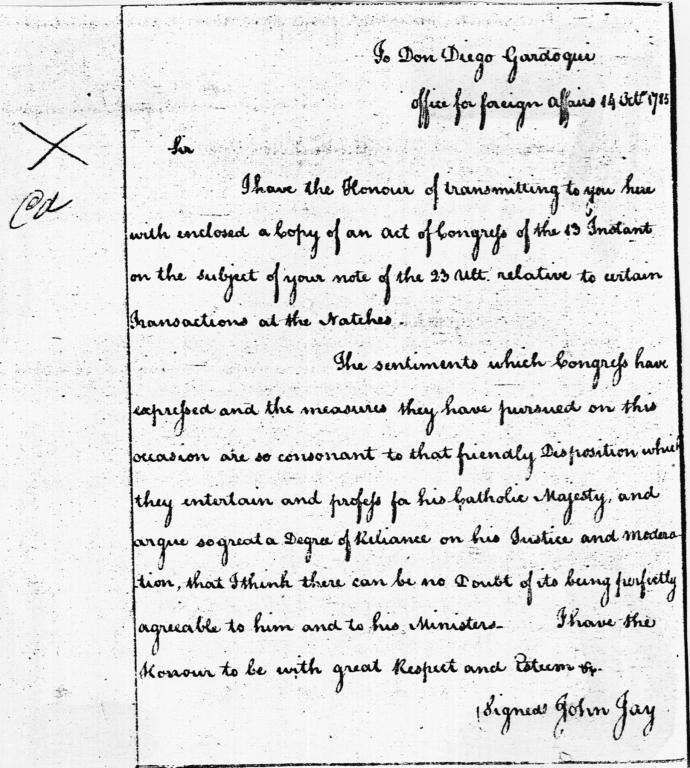 To Don Diego Gardoqui
Office for foreign Affairs 14 Octr. 1785
Sir
I have the Honour of transmitting to you here
with enclosed a Copy of an Act of Congress of the 13 Instant
on the subject of your note of the 23 Ult. relative to certain
Transactions at the Natches.
The sentiments which Congress have
expressed and the measures they have pursued on this
occasion are so consonant to that friendly Disposition which
they entertain and profess for his Catholic Majesty, and
argue so great a Degree of Reliance on his Justice and modera
tion, that I think there can be no Doubt of its being perfectly
agreeable to him and to his Ministers— I have the
Honour to be with great Respect and Esteem &c.
(Signed) John Jay